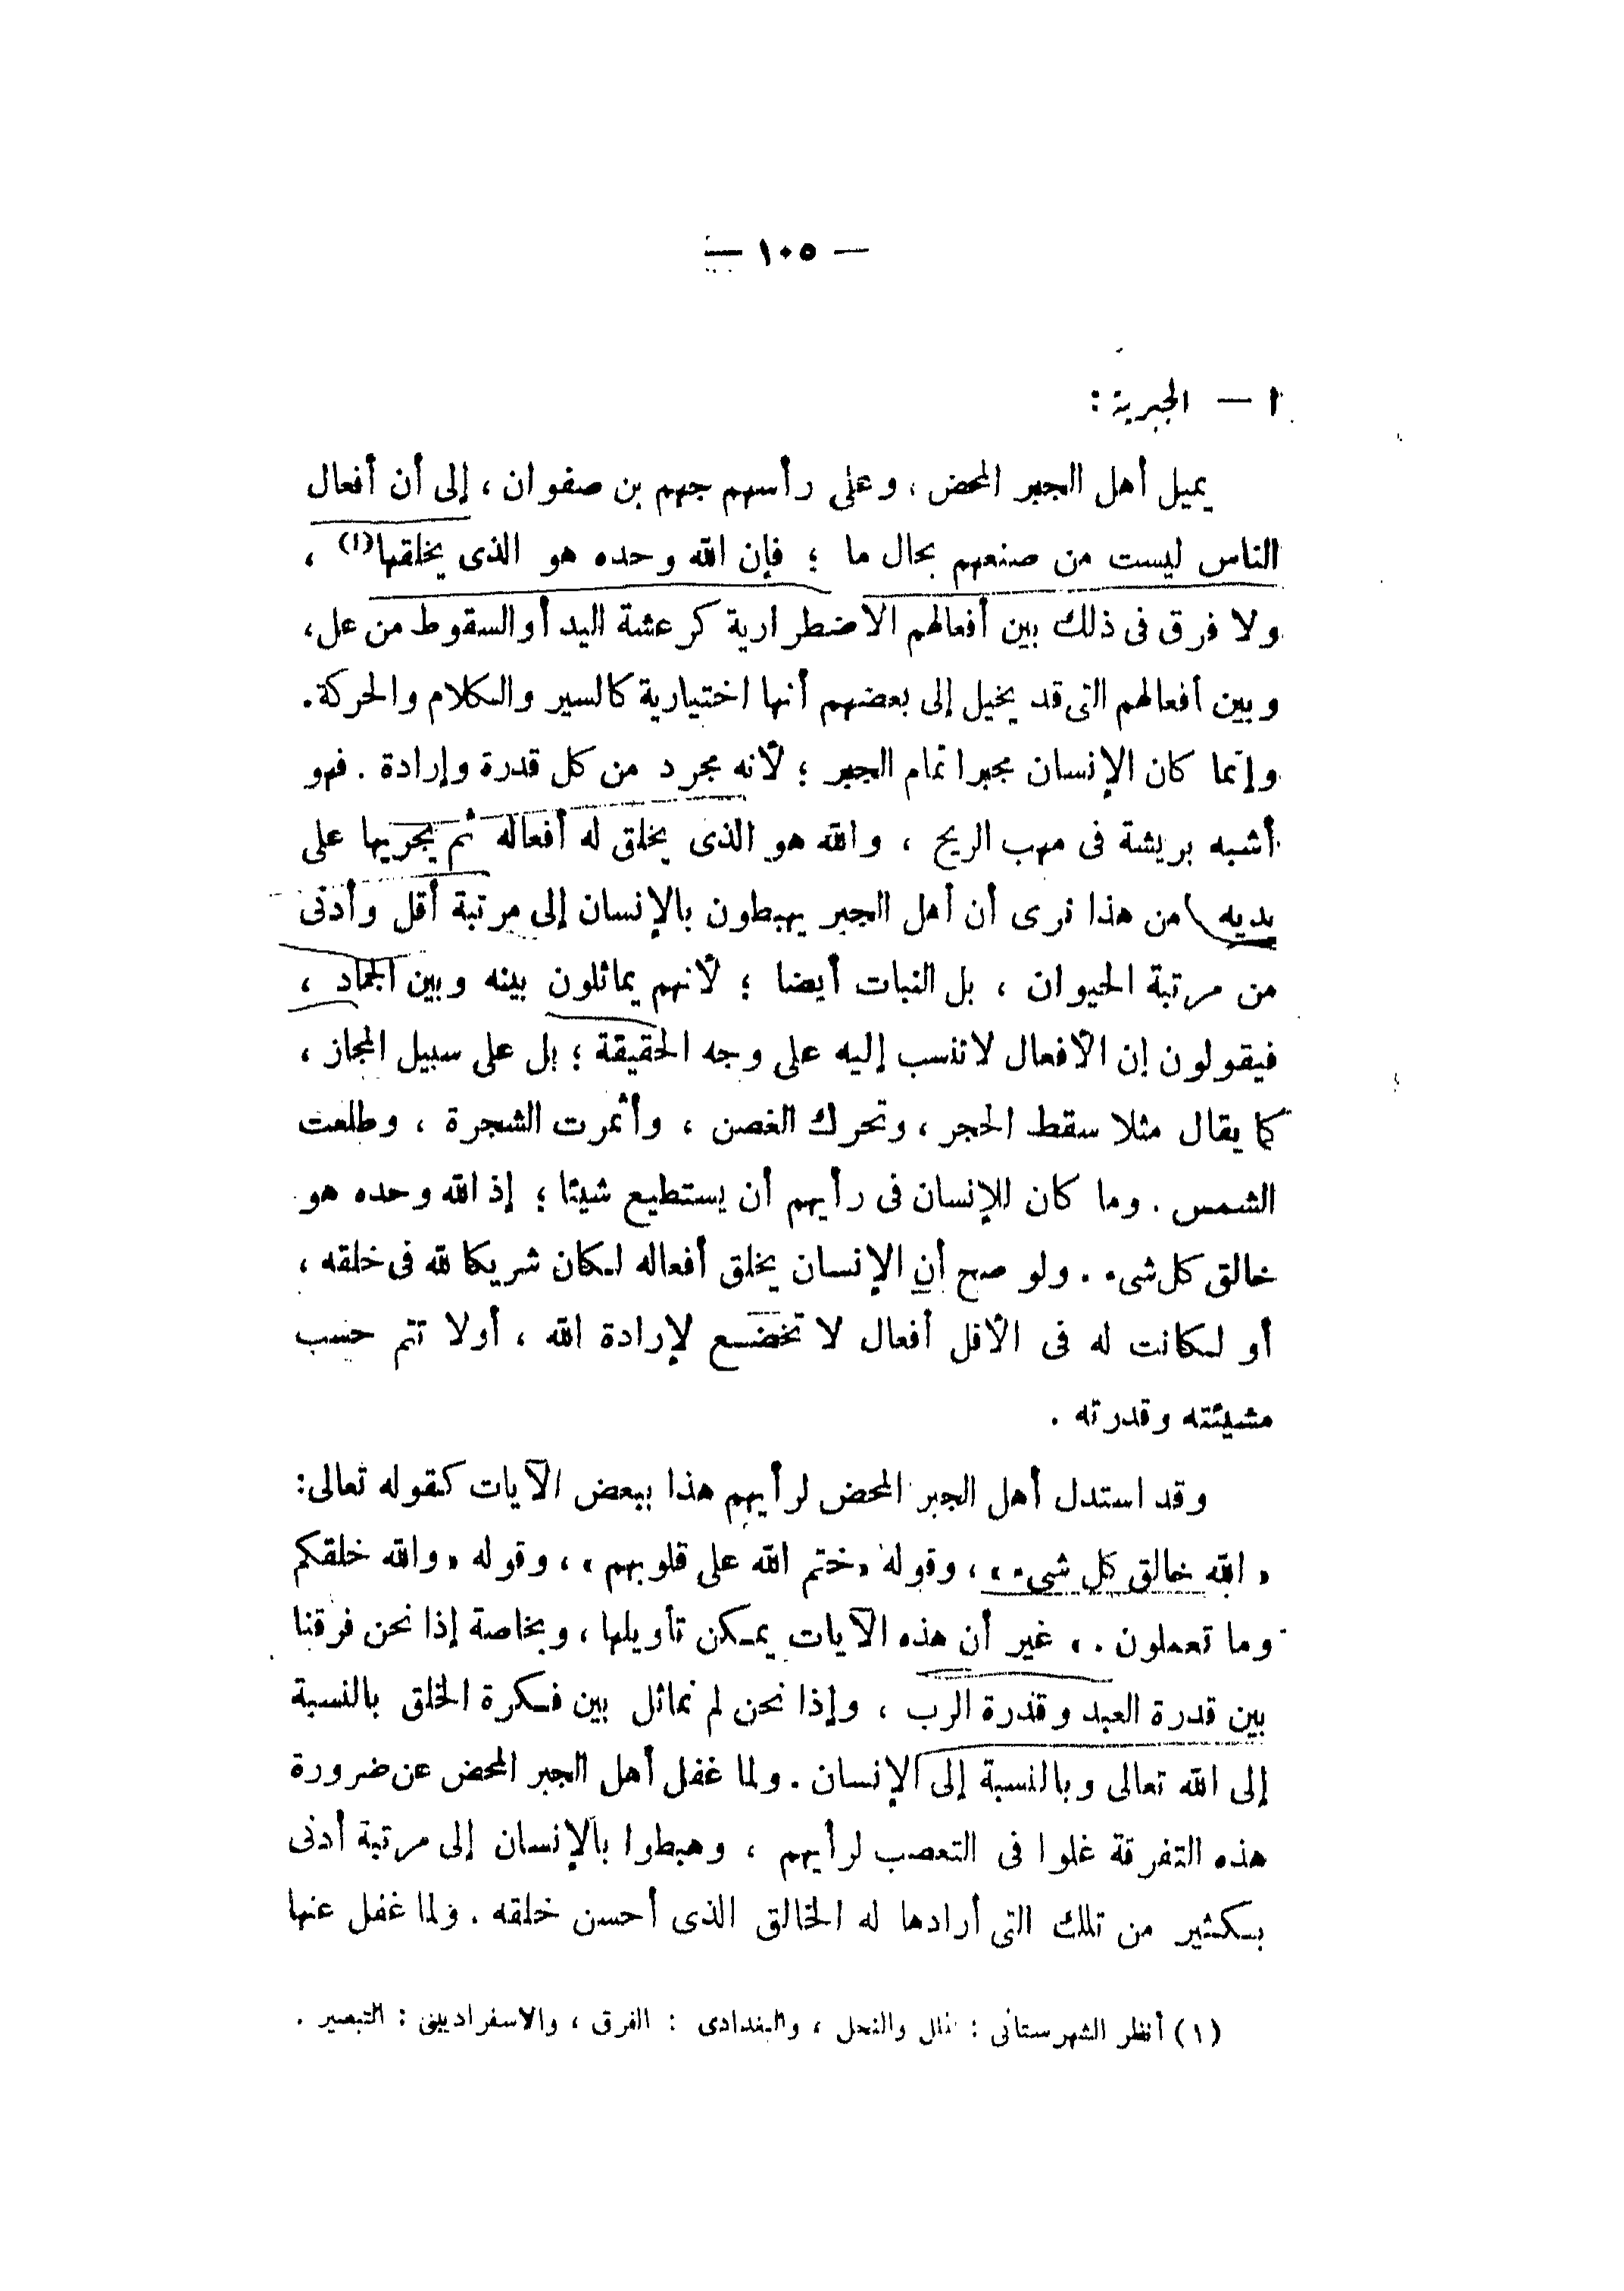 — ١٠٥ —
١ — الجبرية :
يميل أهل الجبر المحض ، وعلى رأسهم جهم بن صفوان ، إلى أن أفعال
الناس ليست من صنعهم بحال ما ؛ فإن الله وحده هو الذى يخلقها(١) ،
ولا فرق فى ذلك بين أفعالهم الاضطرارية كرعشة اليد أو السقوط من عل ،
وبين أفعالهم التى قد يخيل إلى بعضهم أنها اختيارية كالسير والكلام والحركة .
وإنما كان الإنسان مجبرا تمام الجبر ؛ لأنه مجرد من كل قدرة وإرادة . فهو
أشبه بريشة فى مهب الريح ، والله هو الذى يخلق له أفعاله ثم يجريها على
يديه من هذا نرى أن أهل الجبر يهبطون بالإنسان إلى مرتبة أقل وأدنى
من مرتبة الحيوان ، بل النبات أيضا ؛ لأنهم يماثلون بينه وبين الجماد ،
فيقولون إن الأفعال لا تنسب إليه على وجه الحقيقة ؛ بل على سبيل المجاز ،
كما يقال مثلا سقط الحجر ، وتحرك الغصن ، وأثمرت الشجرة ، وطلعت
الشمس . وما كان للإنسان فى رأيهم أن يستطيع شيئا ؛ إذ الله وحده هو
خالق كل شىء . ولو صح أن الإنسان يخلق أفعاله لكان شريكا لله فى خلقه ،
أو لكانت له فى الأقل أفعال لا تخضع لإرادة الله ، أولا تتم حسب
مشيئته وقدرته .
وقد استدل أهل الجبر المحض لرأيهم هذا ببعض الآيات كقوله تعالى :
« الله خالق كل شىء » ، وقوله « ختم الله على قلوبهم » ، وقوله « والله خلقكم
وما تعملون . » غير أن هذه الآيات يمكن تأويلها ، وبخاصة إذا نحن فرقنا
بين قدرة العبد وقدرة الرب ، وإذا نحن لم نماثل بين فكرة الخلق بالنسبة
إلى الله تعالى وبالنسبة إلى الإنسان . ولما غفل أهل الجبر المحض عن ضرورة
هذه التفرقة غلوا فى التعصب لرأيهم ، وهبطوا بالإنسان إلى مرتبة أدنى
بكثير من تلك التى أرادها له الخالق الذى أحسن خلقه . ولما غفل عنها
(١) أنظر الشهرستانى : الملل والنحل ، والبغدادى : الفرق ، والاسفرادينى : التبصير .